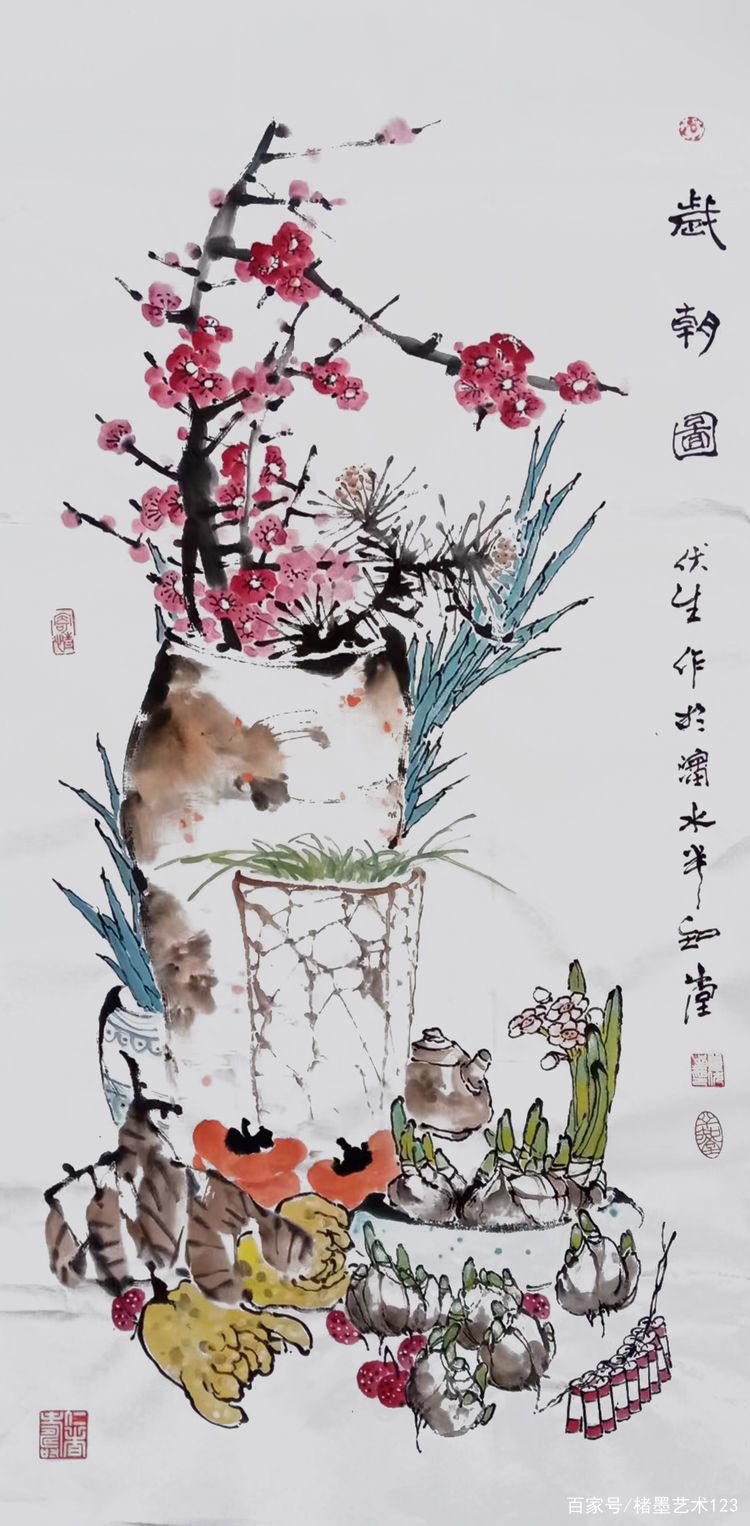 歲朝圖
伏生作於瀟水半知堂
百家号/楮墨艺术123